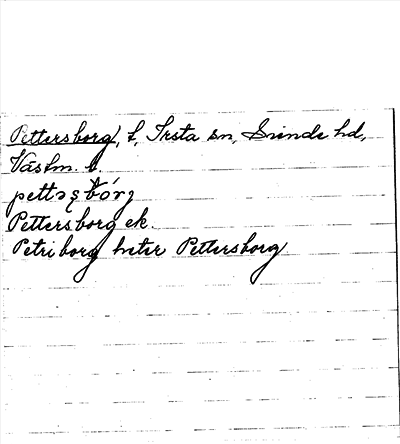 Pettersborg, t, Irsta sn, Siende hd,
Västm. l.
Pettersborg ek.
Petriborg heter Pettersborg